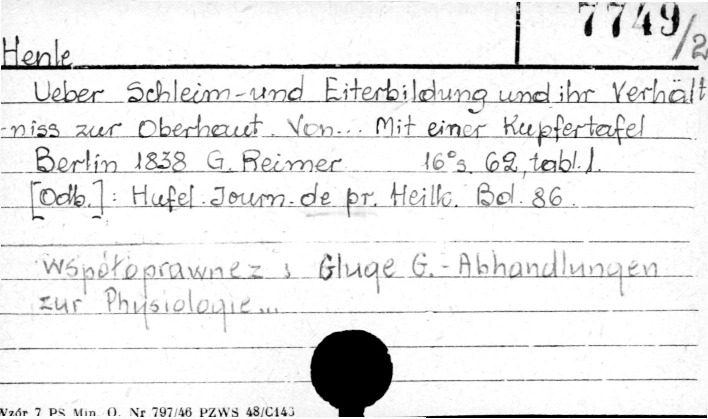 7749/2
Henle
Ueber Schleim-und Eiterbildung und ihr Verhält
niss zur Oberhaut. Von... Mit einer Kupfertafel
Berlin 1838 G. Reimer 16° s. 62, tabl. 1.
[Odb.]: Hufel. Journ. de pr. Heilk. Bd. 86.
Współoprawne z : Gluge G. - Abhandlungen
zur Physiologie...
Wzór 7 PS Min. O. Nr 797/46 PZWS 48/C143